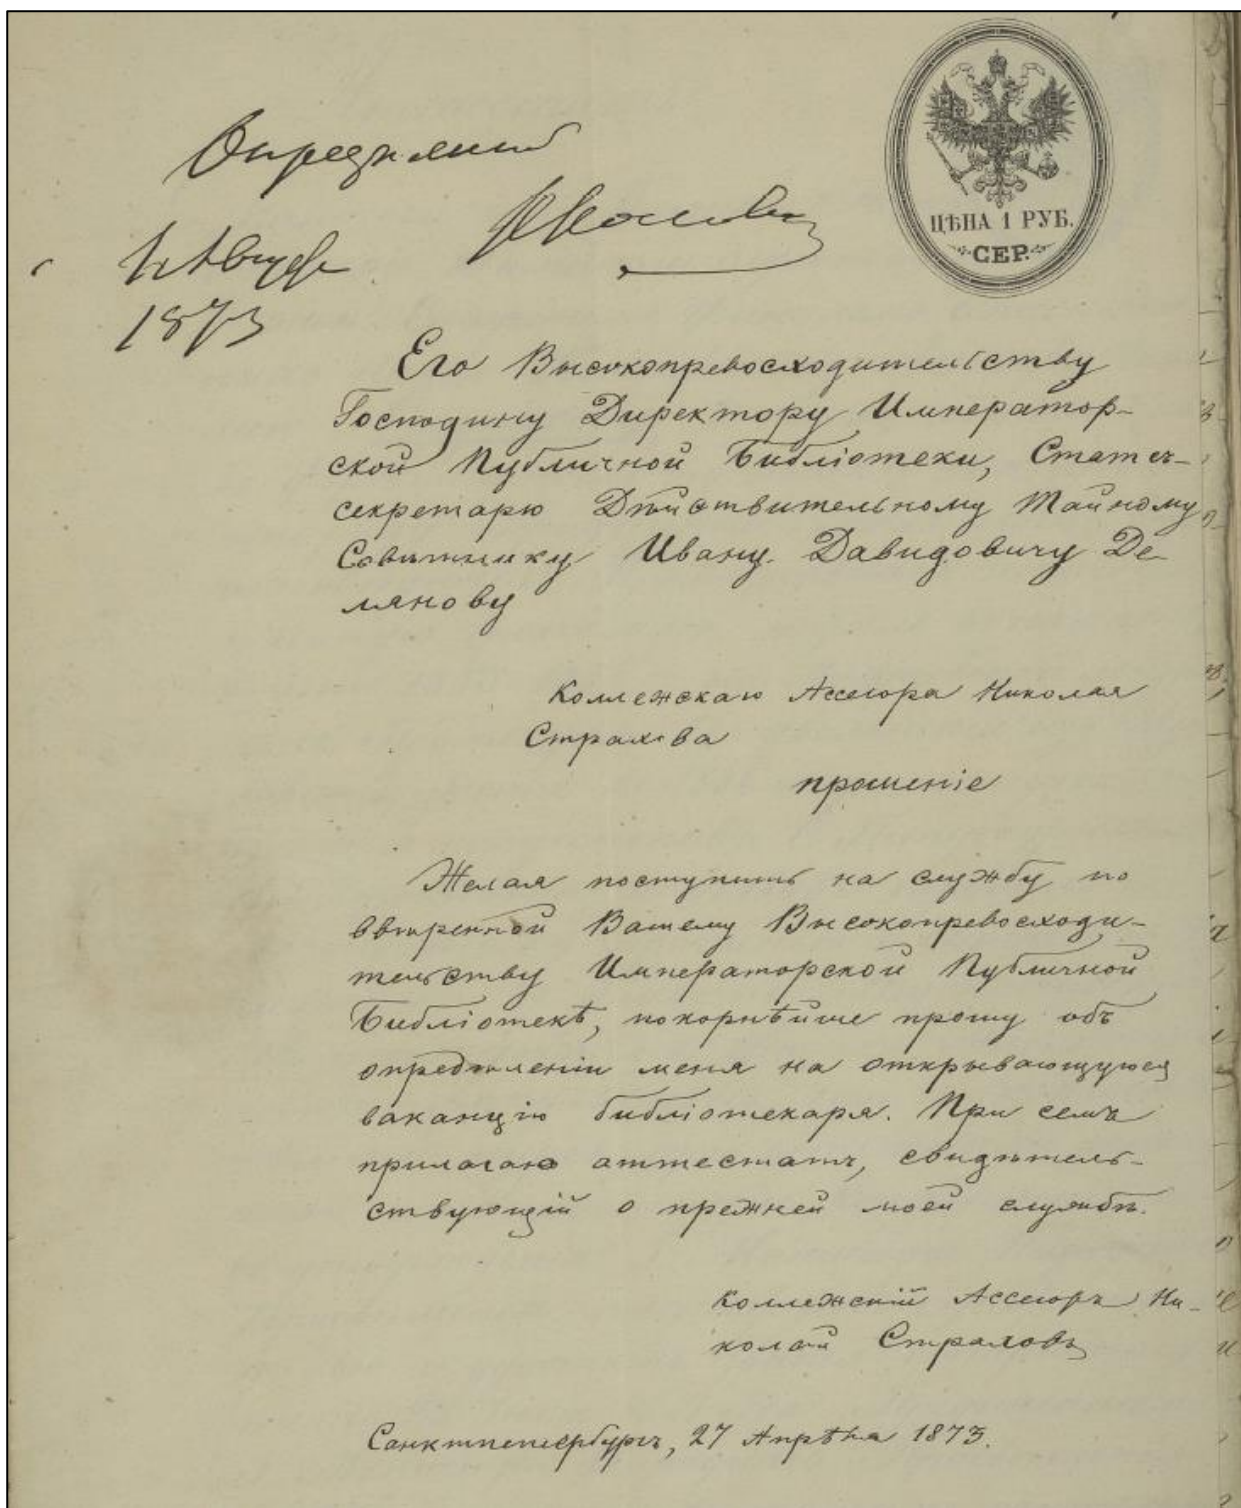 ЦѢНА 1 РУБ.
СЕР.
1873
Его Высокопревосходительству
Господину Директору Император-
ской Публичной Библіотеки, Статсъ-
секретарю Дѣйствительному Тайному
Совѣтнику Ивану Давидовичу Де
лянову
Коллежскаго Ассесора Николая
Страхова
прошеніе
Желая поступить на службу по
ввѣренной Вашему Высокопревосходи-
тельству Императорской Публичной
Библіотекѣ, покорнѣйше прошу объ
опредѣленіи меня на открывающуюся
ваканцію библіотекаря. При семъ
прилагаю аттестатъ, свидѣтель-
ствующій о прежней моей службѣ.
Коллежскій Ассесоръ Ни-
колай Страховъ
Санктпетербургъ, 27 Апрѣля 1873.